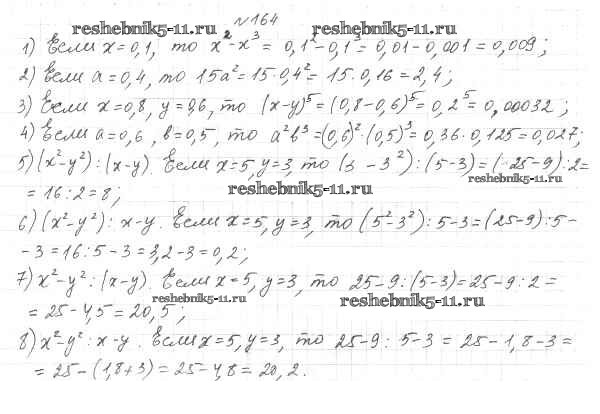 №164
reshebnik5-11.ru reshebnik5-11.ru
1) Если x=0,1, то x²-x³ = 0,1²-0,1³= 0,01-0,001=0,009;
2) Если a=0,4, то 15a²=15·0,4²= 15·0,16=2,4;
3) Если x=0,8, y=0,6, то (x-y)⁵=(0,8-0,6)⁵=0,2⁵=0,00032;
4) Если a=0,6, b=0,5, то a²b³=(0,6)²·(0,5)³=0,36·0,125=0,027;
5) (x²-y²):(x-y). Если x=5, y=3, то (5²-3²):(5-3)=(25-9):2=
reshebnik5-11.ru
= 16:2=8;
reshebnik5-11.ru
6) (x²-y²): x-y. Если x=5, y=3, то (5²-3²):5-3=(25-9):5-
-3=16:5-3=3,2-3=0,2;
7) x²-y²:(x-y). Если x=5, y=3, то 25-9:(5-3)=25-9:2=
reshebnik5-11.ru reshebnik5-11.ru
= 25-4,5=20,5;
8) x²-y²:x-y. Если x=5, y=3, то 25-9:5-3= 25-1,8-3=
= 25-(1,8+3)=25-4,8=20,2.